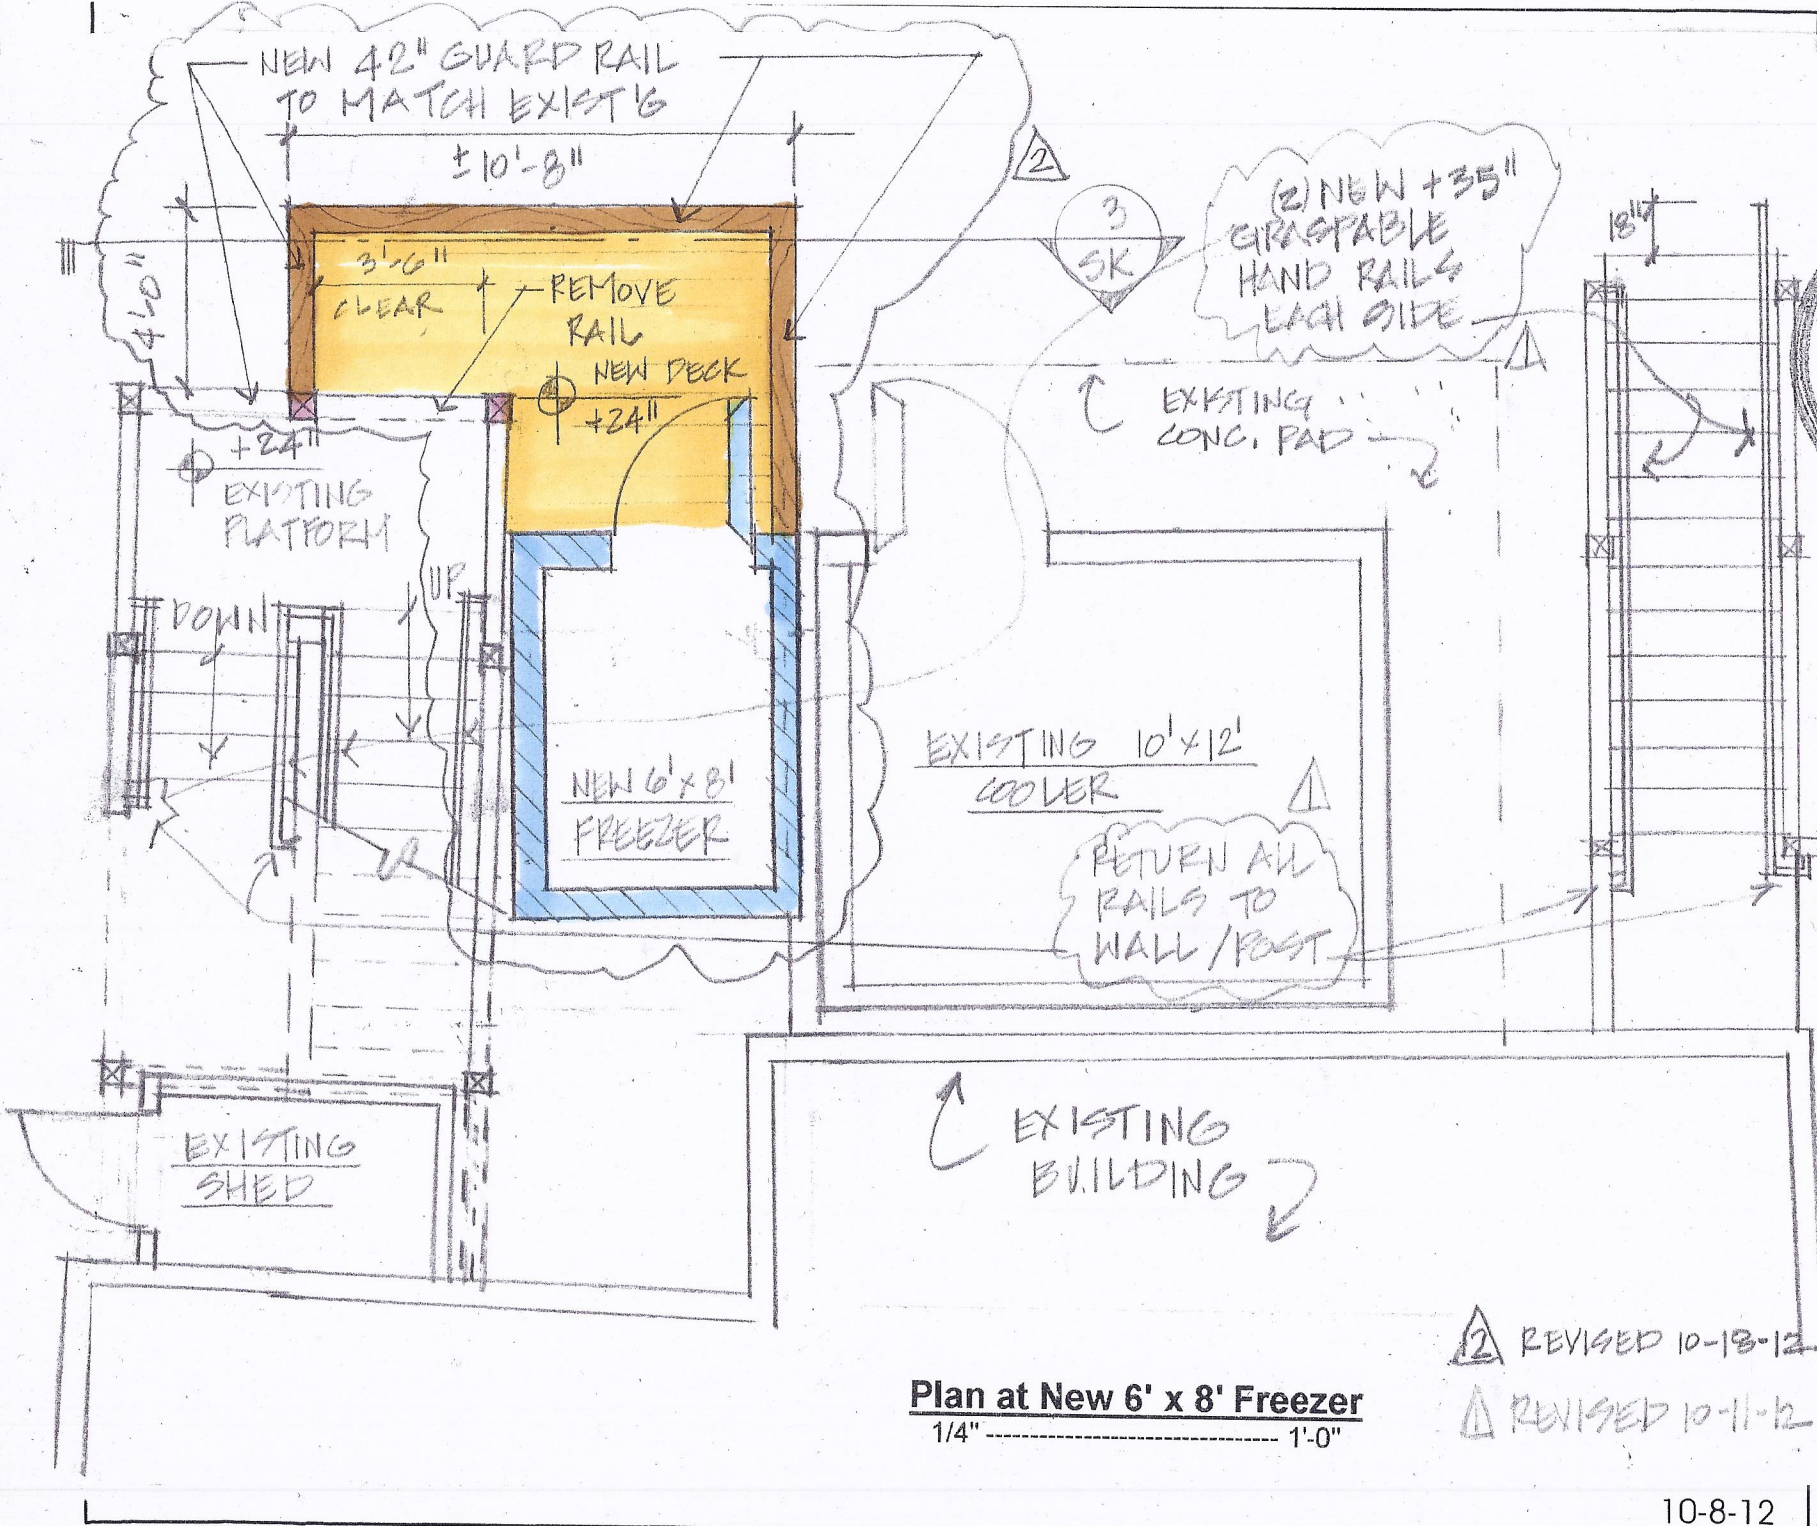 NEW 42" GUARD RAIL
TO MATCH EXIST'G
±10'-8"
2
3
SK
(2) NEW +35"
GRASPABLE
HAND RAILS
EACH SIDE
1
18"
4'-0"
3'-6"
CLEAR
REMOVE
RAIL
NEW DECK
+24"
+24"
EXISTING
PLATFORM
EXISTING
CONC. PAD
DOWN
UP
NEW 6' x 8'
FREEZER
EXISTING 10' x 12'
COOLER
1
RETURN ALL
RAILS TO
WALL / POST
EXISTING
SHED
EXISTING
BUILDING
2 REVISED 10-18-12
Plan at New 6' x 8' Freezer
1/4" ------------------------------ 1'-0"
1 REVISED 10-11-12
10-8-12